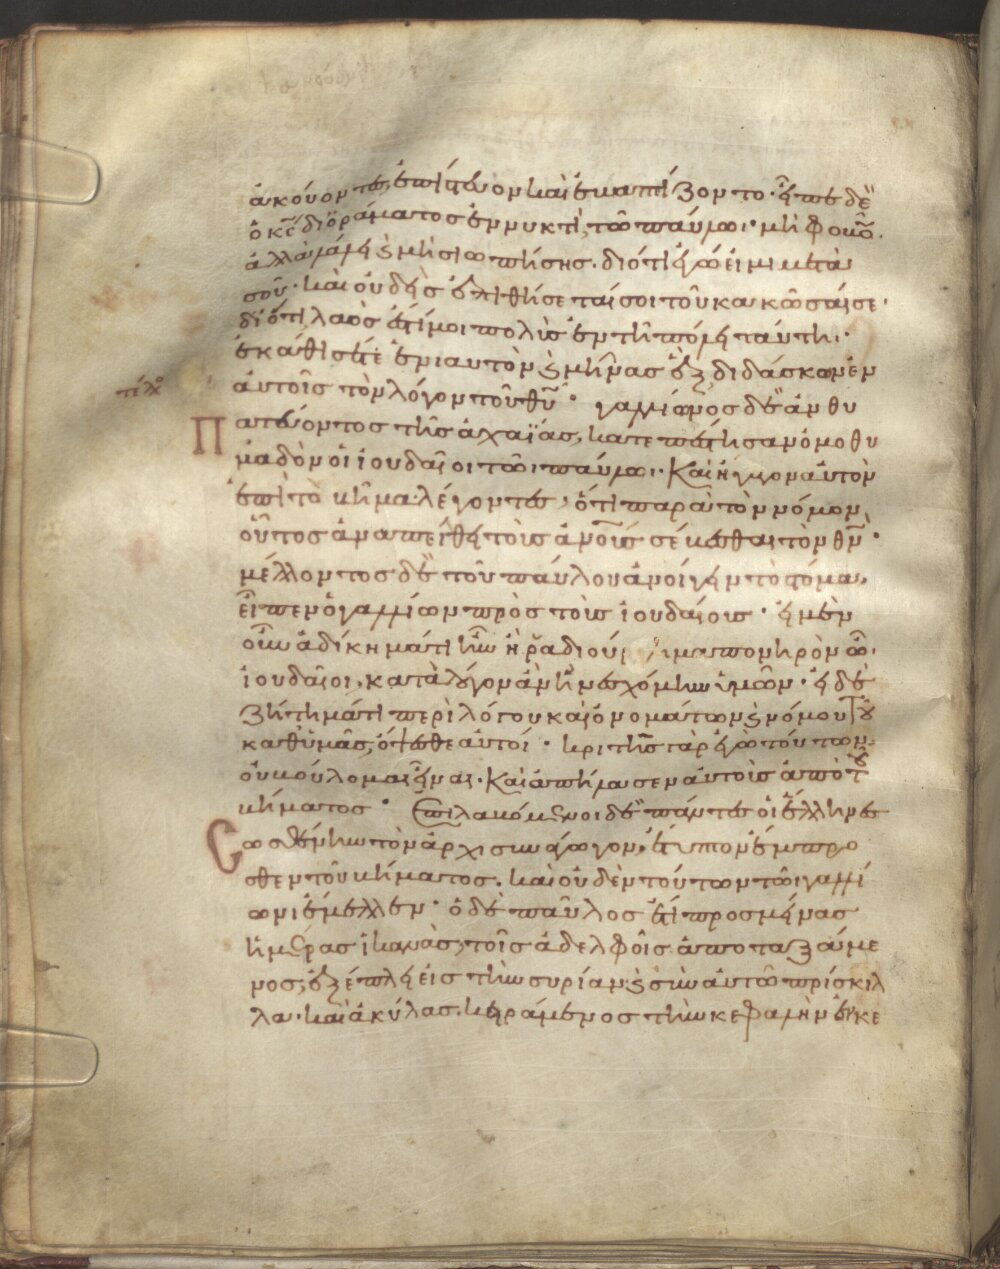 ἀκούοντες ἐπίστευον καὶ ἐβαπτίζοντο· εἶπε δὲ
ὁ κς̄ δι' ὁράματος ἐν νυκτὶ, τῶ παύλωι· μὴ φοβοῦ·
ἀλλὰ λάλει ϗ μὴ σιωπήσης. διότι ἐγώ εἰμι μετὰ
σοῦ· καὶ οὐδεὶς ἐπιθήσεταί σοι τοῦ κακῶσαί σε·
διότι λαὸς ἐστί μοι πολὺς ἐν τῆ πόλει ταύτη·
ἐκάθισέ τε ἐνιαυτὸν ϗ μῆνας ἓξ διδάσκων ἐν
τέλο
αὐτοῖς τὸν λόγον τοῦ θῦ· γαλλίωνος δὲ ἀνθυ
πατεύοντος τῆς ἀχαΐας, κατεπέστησαν ὁμοθυ
μαδὸν οἱ ἰουδαῖοι τῶι παύλωι. Καὶ ἤγαγον αὐτὸν
ἐπὶ τὸ βῆμα λέγοντες, ὅτι παρὰ τὸν νόμον
οὗτος ἀναπείθει τοὺς ἀνοῦς σέβεσθαι τὸν θν·
μέλλοντος δὲ τοῦ παύλου ἀνοίγειν τὸ στόμα,
εἶπεν ὁ γαλλίων πρὸς τοὺς ἰουδαίους· εἰ μὲν
οὖν ἀδίκημά τι ἦν ἢ ῥαδιούργημα πονηρὸν ὦ
ἰουδαῖοι, κατὰ λόγον ἂν ἠνεσχόμην ὑμῶν· εἰ δὲ
ζήτημά τι περὶ λόγου καὶ ὀνομάτων ϗ νόμου τοῦ
καθ' ὑμᾶς, ὄψεσθε αὐτοί· κριτὴς γὰρ ἐγὼ τούτων
οὐ βούλομαι εἶναι. Καὶ ἀπήλασεν αὐτοὺς ἀπὸ τοῦ
βήματος· Ἐπιλαβόμενοι δὲ πάντες οἱ ἕλληνες
σωσθένην τὸν ἀρχισυνάγωγον, ἔτυπτον ἔμπρο
σθεν τοῦ βήματος. καὶ οὐδὲν τούτων τῶι γαλλί
ωνι ἔμελλεν· ὁ δὲ παῦλος ἔτι προσμείνας
ἡμέρας ἱκανὰς, τοῖς ἀδελφοῖς ἀποταξάμε
νος, ἐξέπλει εἰς τὴν συρίαν· ϗ σὺν αὐτῶ πρίσκιλ
λα· καὶ ἀκύλας. κειράμενος τὴν κεφαλὴν ἐν κε